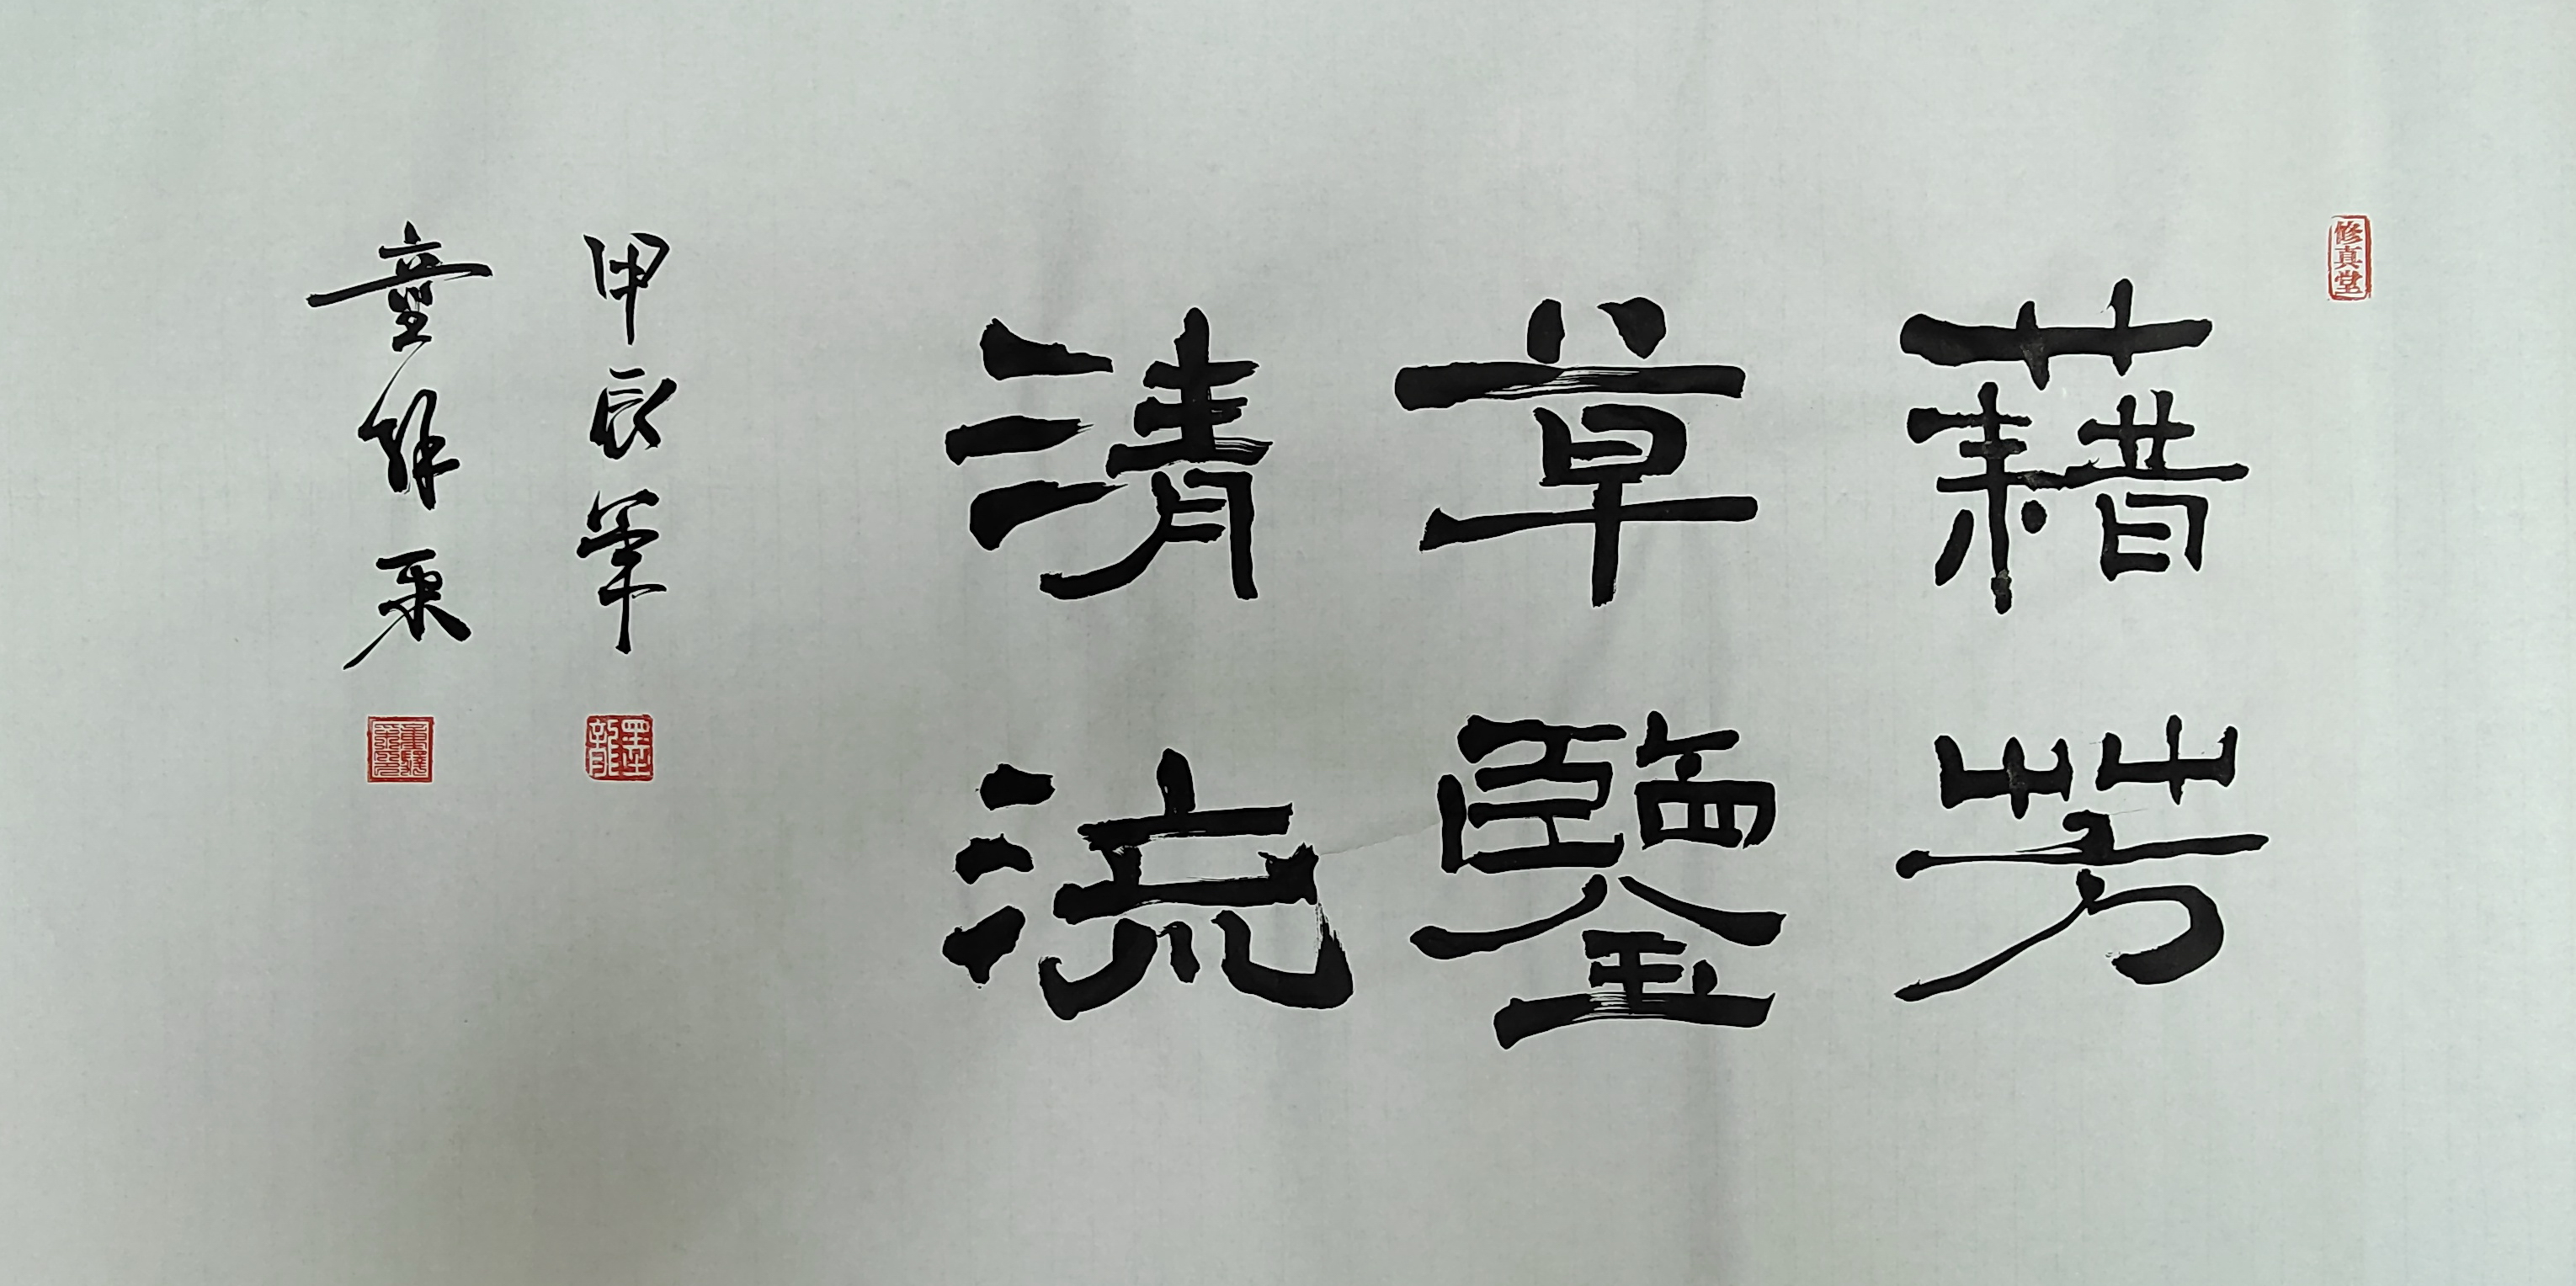 修真堂
藉芳
草鑒
清流
甲辰年
墨龍